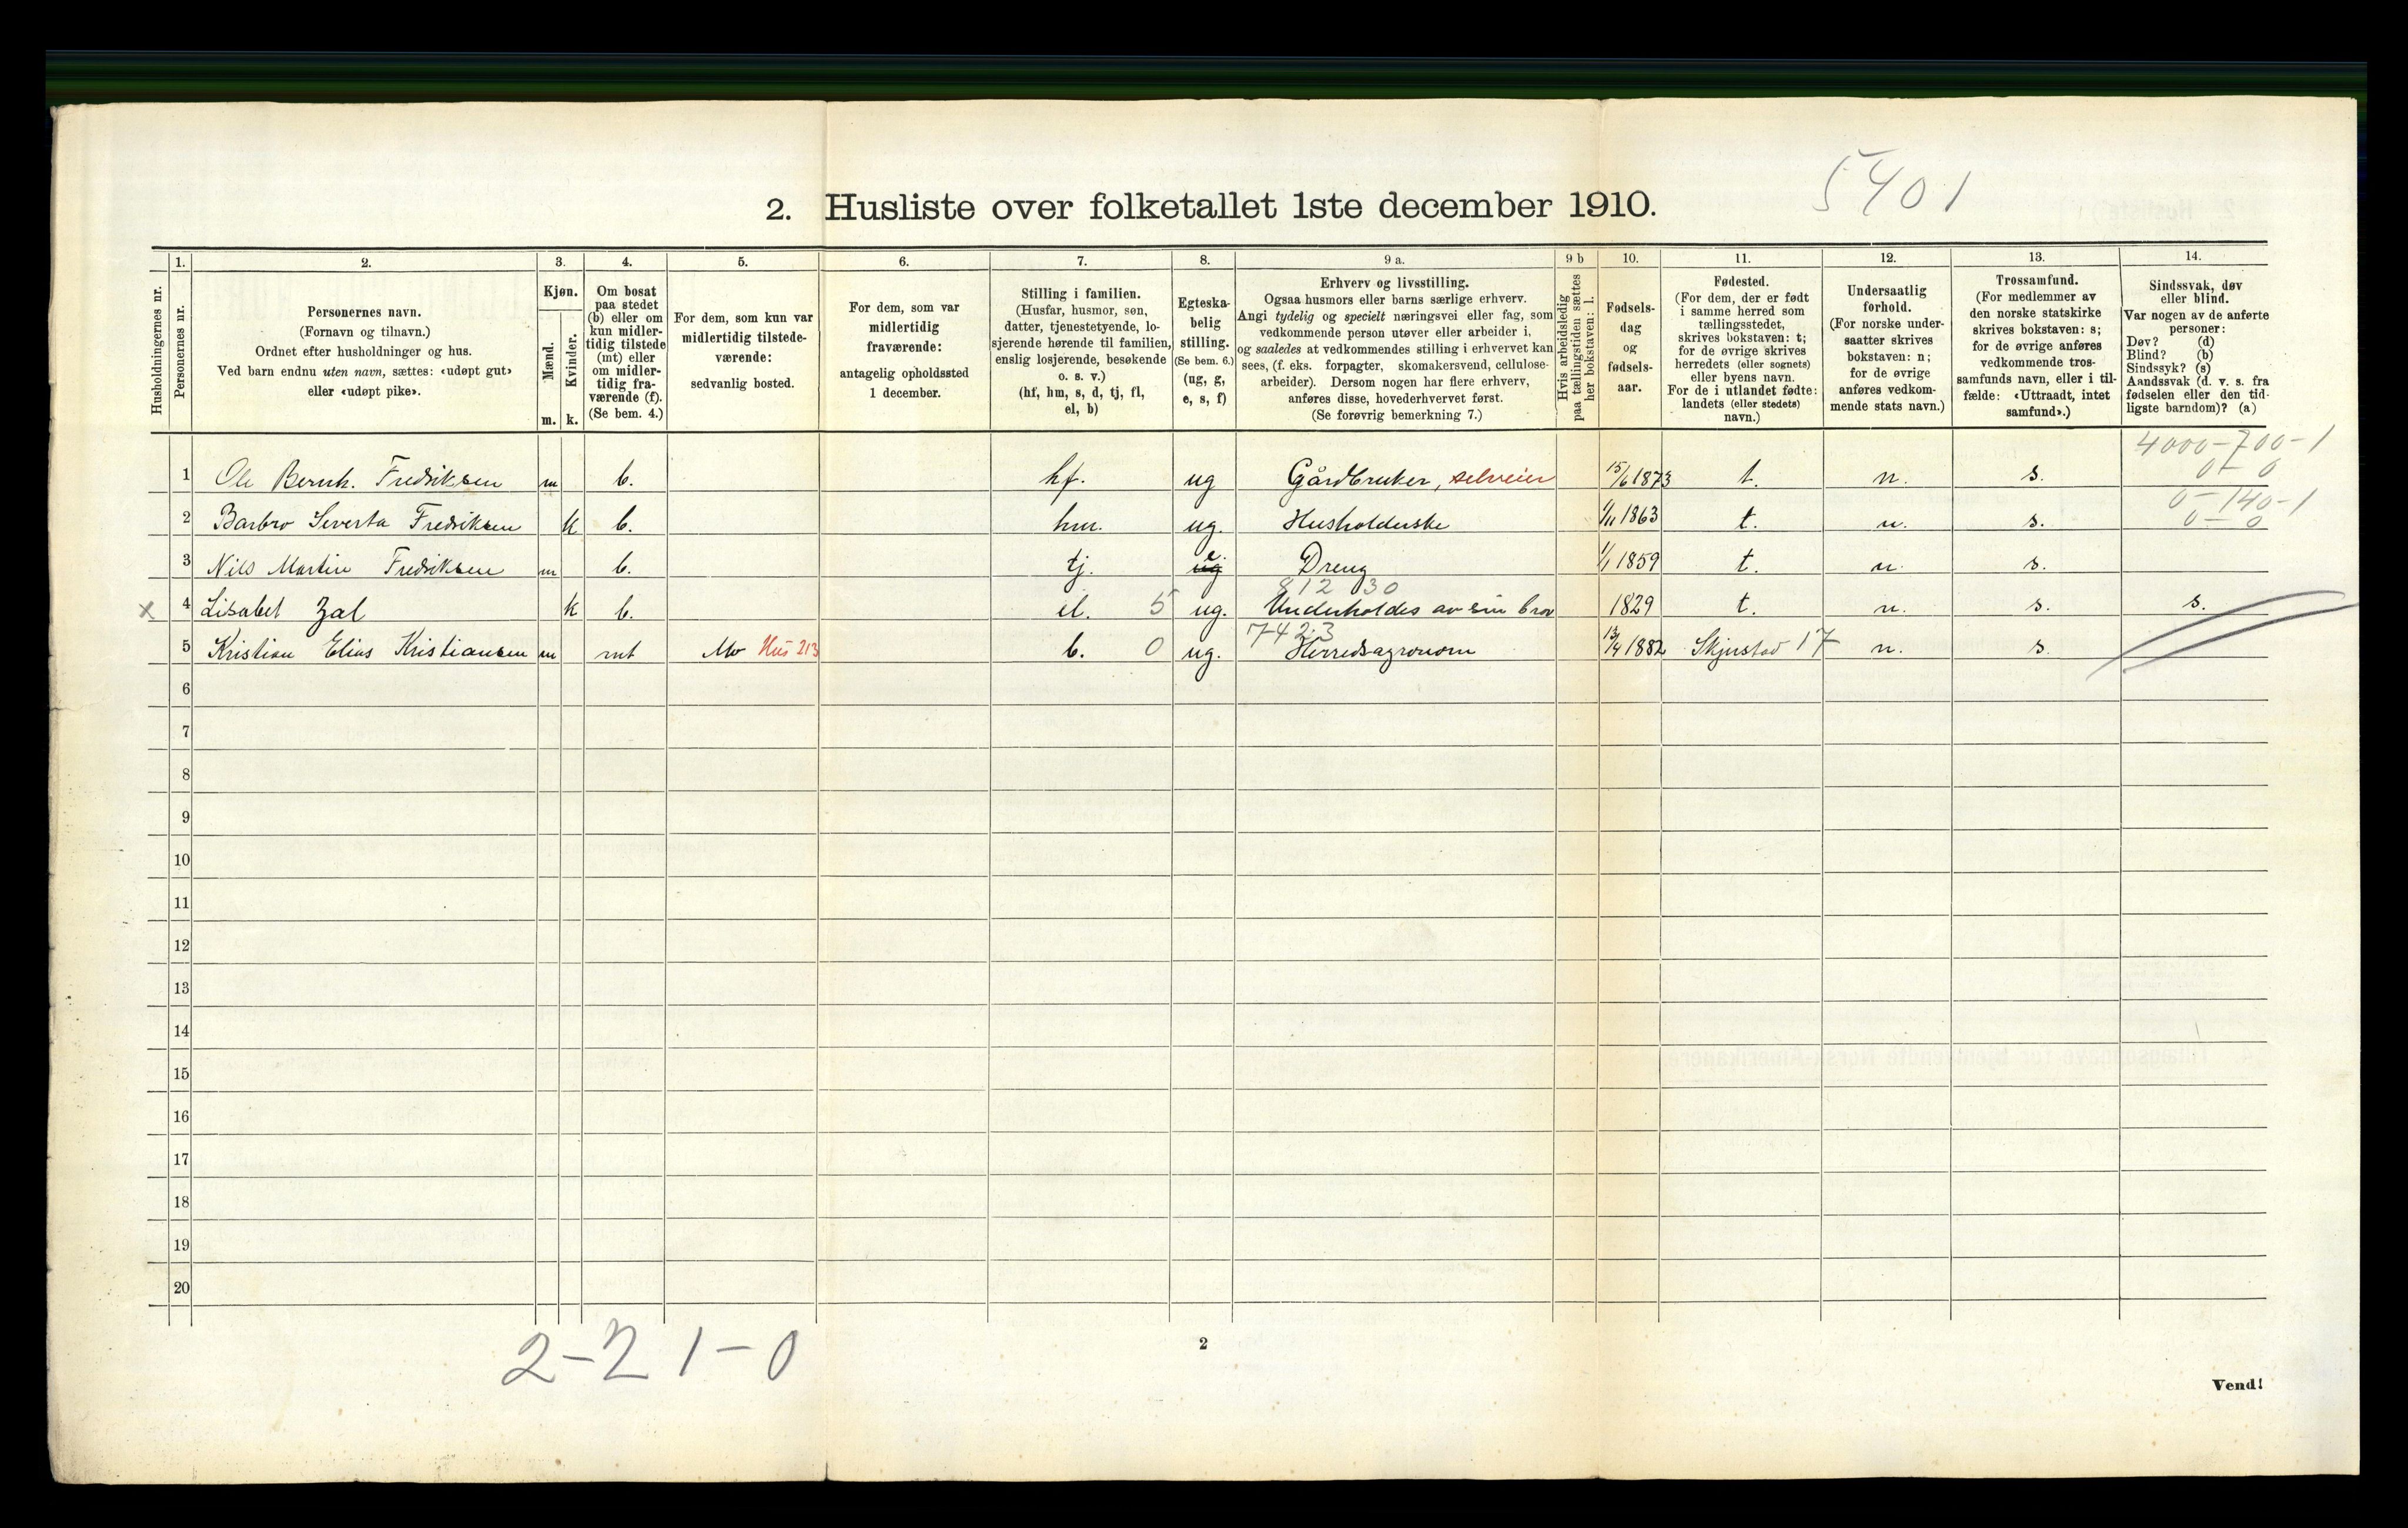 5401
2. Husliste over folketallet 1ste december 1910.
Husholdningernes nr.
1.
Personernes nr.
2.
Personernes navn.
(Fornavn og tilnavn.)
Ordnet efter husholdninger og hus.
Ved barn endnu uten navn, sættes: «udøpt gut»
eller «udøpt pike».
3.
Kjøn.
Mænd.
Kvinder.
m. k.
4.
Om bosat
paa stedet
(b) eller om
kun midler-
tidig tilstede
(mt) eller
om midler-
tidig fra-
værende (f).
(Se bem. 4.)
5.
For dem, som kun var
midlertidig tilstede-
værende:
sedvanlig bosted.
6.
For dem, som var
midlertidig
fraværende:
antagelig opholdssted
1 december.
7.
Stilling i familien.
(Husfar, husmor, søn,
datter, tjenestetyende, lo-
sjerende hørende til familien,
enslig losjerende, besøkende
o. s. v.)
(hf, hm, s, d, tj, fl,
el, b)
8.
Egteska-
belig
stilling.
(Se bem. 6.)
(ug, g,
e, s, f)
9 a.
Erhverv og livsstilling.
Ogsaa husmors eller barns særlige erhverv.
Angi tydelig og specielt næringsvei eller fag, som
vedkommende person utøver eller arbeider i,
og saaledes at vedkommendes stilling i erhvervet kan
sees, (f. eks. forpagter, skomakersvend, cellulose-
arbeider). Dersom nogen har flere erhverv,
anføres disse, hovederhvervet først.
(Se forøvrig bemerkning 7.)
9 b
Hvis arbeidsledig
paa tællingstiden sættes
her bokstaven: l.
10.
Fødsels-
dag
og
fødsels-
aar.
11.
Fødested.
(For dem, der er født
i samme herred som
tællingsstedet,
skrives bokstaven: t;
for de øvrige skrives
herredets (eller sognets)
eller byens navn.
For de i utlandet fødte:
landets (eller stedets)
navn.)
12.
Undersaatlig
forhold.
(For norske under-
saatter skrives
bokstaven: n;
for de øvrige
anføres vedkom-
mende stats navn.)
13.
Trossamfund.
(For medlemmer av
den norske statskirke
skrives bokstaven: s;
for de øvrige anføres
vedkommende tros-
samfunds navn, eller i til-
fælde: «Uttraadt, intet
samfund».)
14.
Sindssvak, døv
eller blind.
Var nogen av de anførte
personer:
Døv? (d)
Blind? (b)
Sindssyk? (s)
Aandssvak (d. v. s. fra
fødselen eller den tid-
ligste barndom)? (a)
4000-700-1
0-0
1 Ole Bernh. Fredriksen m b. hf. ug Gårdbruker, selveier 15/6 1873 t. n. s.
0-140-1
0-0
2 Barbro Severta Fredriksen k b. hm. ug. Husholderske 1/11 1863 t. n. s.
3 Nils Martin Fredriksen m b. tj. ug e. Dreng 1/1 1859 t. n. s.
812 30
x 4 Lisabet Zal k b. el. 5 ug. Underholdes av sin bror 1829 t. n. s. s.
742.3
5 Kristian Elias Kristiansen m mt Mo Hus 213 b. 0 ug. Herredsagronom 13/4 1882 Skjerstad 17 n. s.
6
7
8
9
10
11
12
13
14
15
16
17
18
19
20
2-2 1-0
2
Vend!